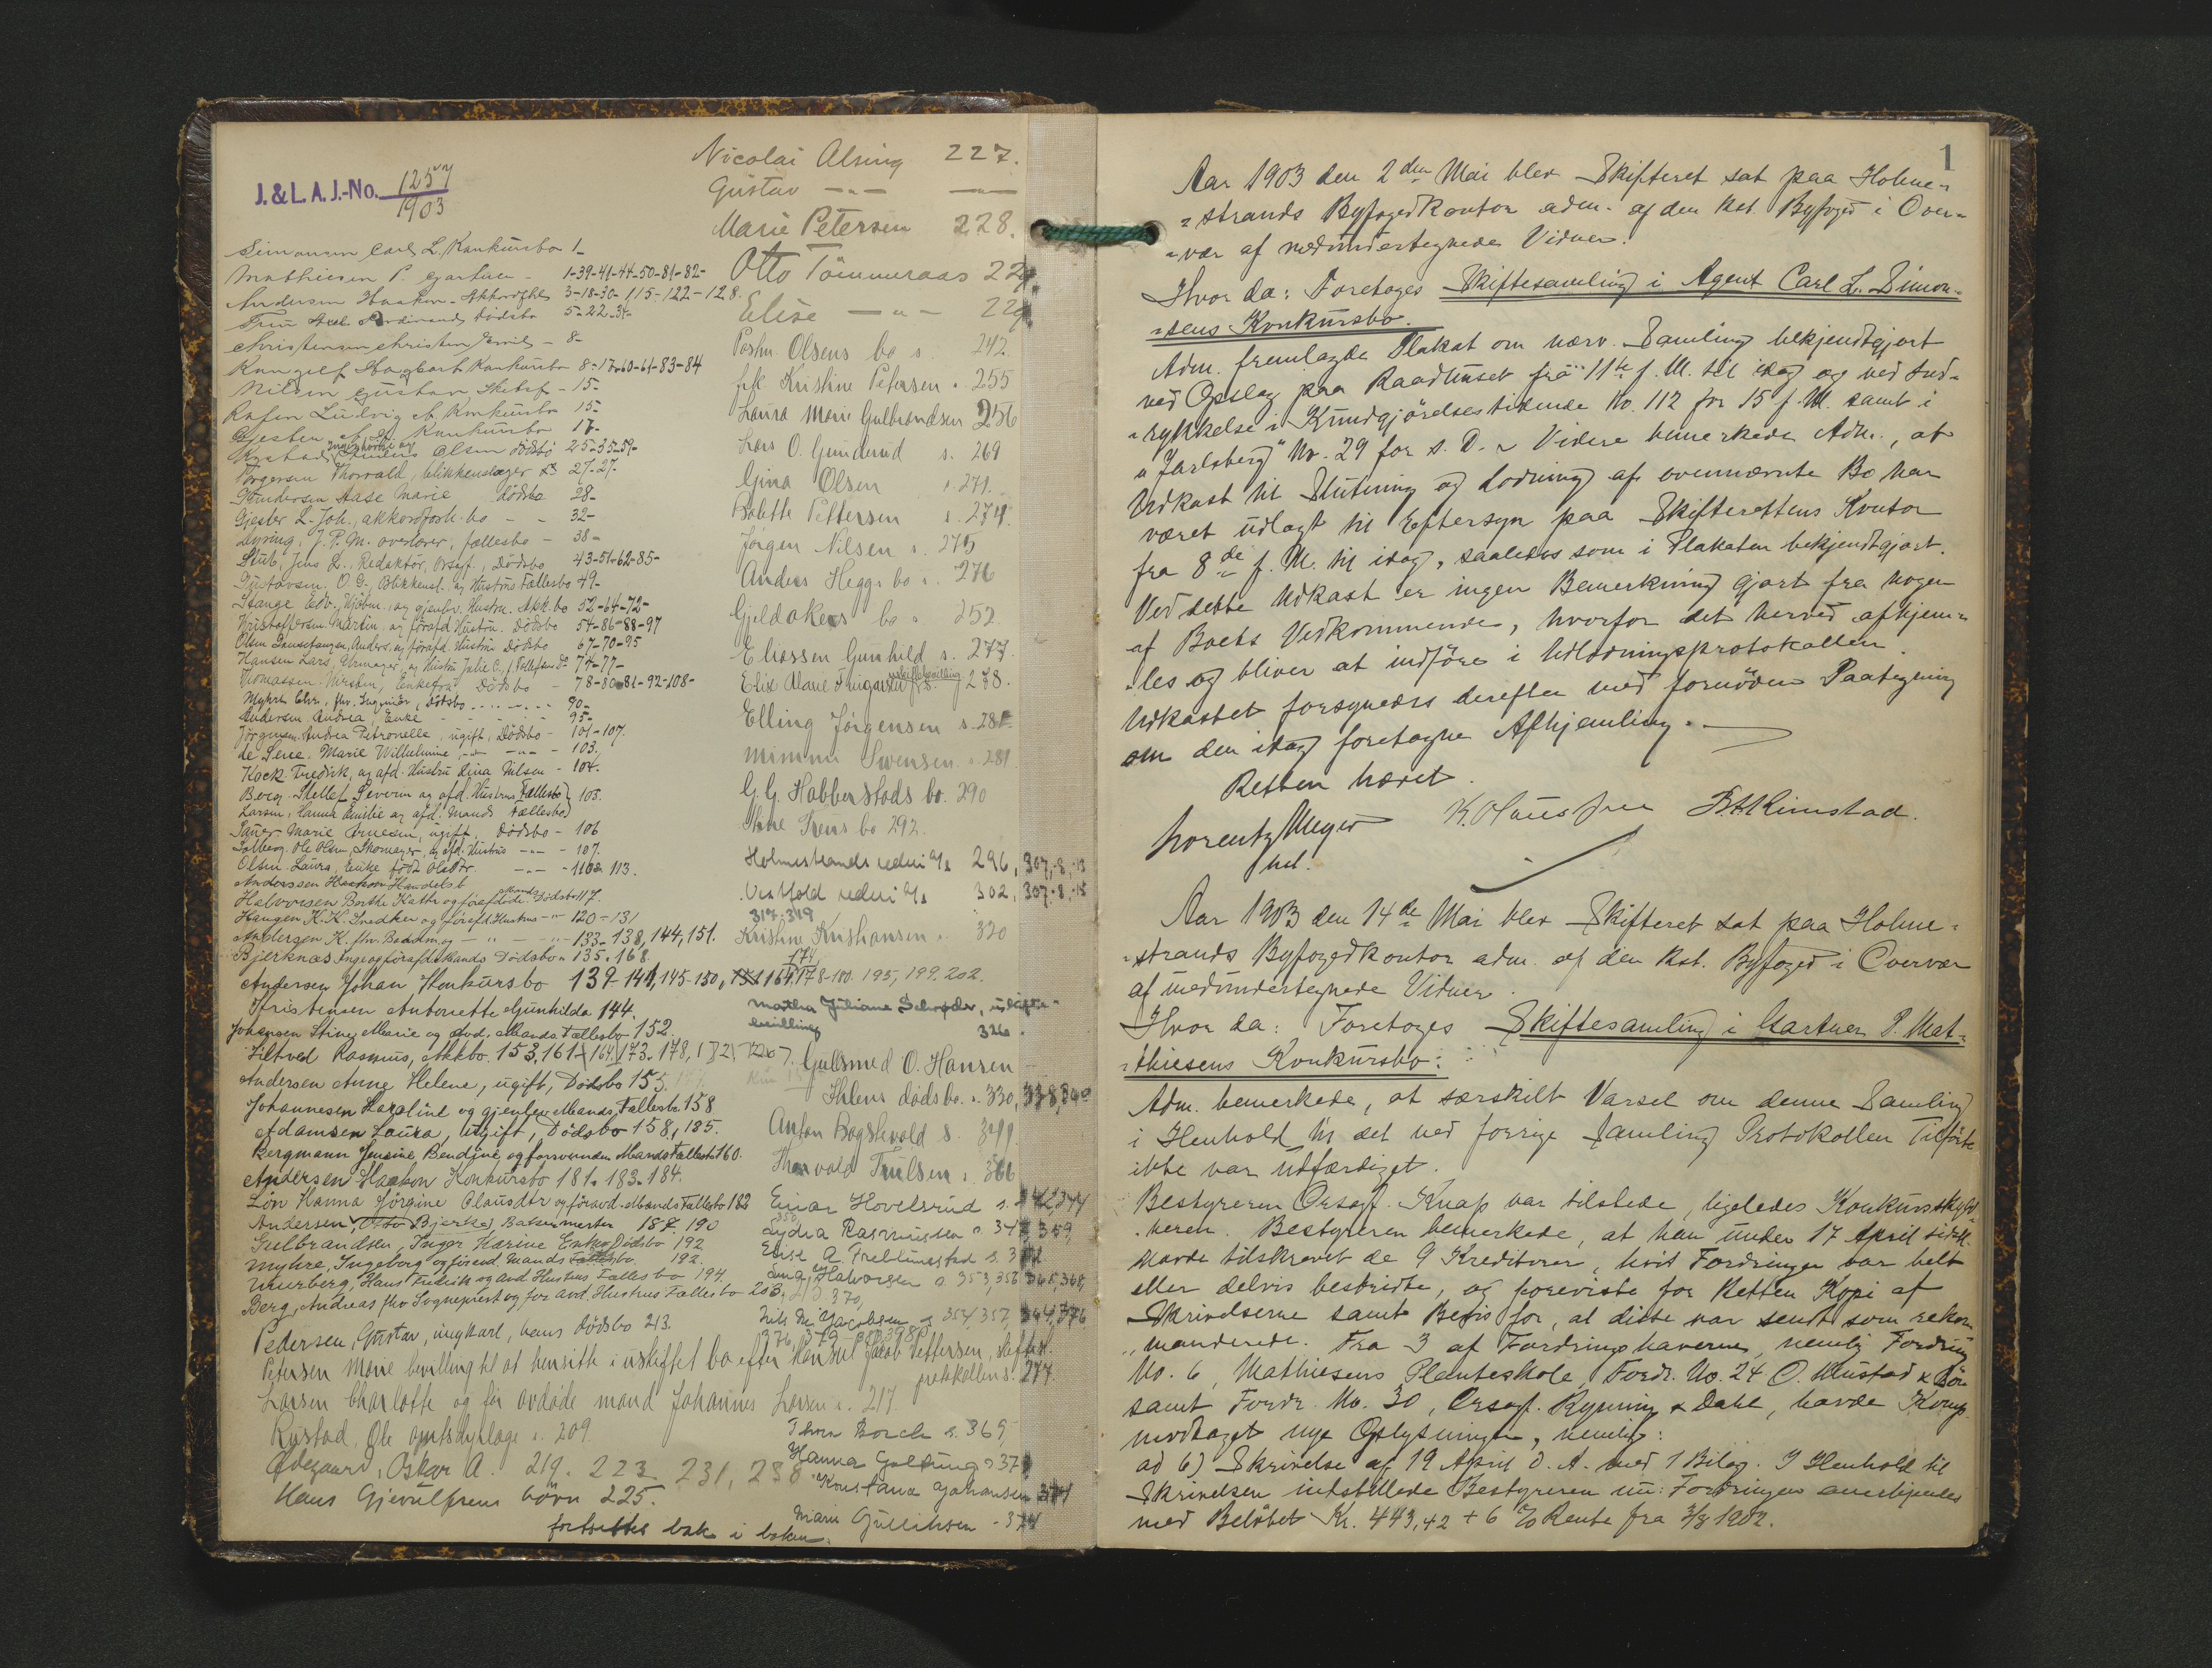 J. & L. A. J.-No. 1257
1903
Simonsen Carl L. Konkursbo 1-
Mathiesen P. gartner - 1-39-41-44-50-81-82-
Andersen Haakon - Akkordfhl. 3-18-30-115-122-128.
Ferdinands Dödsbo 5-22-34-
Christensen Christen Emil - 8-
Hagbart Konkursbo 8-17-60-61-83-84
Nilsen Gustav - 15-
Ludvig Konkursbo 15-
Konkursbo 17-
Olsen Dödsbo 25-35-59-
Torgersen Thorvald, blikkenslager Do 27-27-
Gundersen Aase Marie Dödsbo 28-
Gjester L. Joh., akkordforh. bo - - 32-
J. P. M. overlærer, fællesbo - 38-
Stub, Jens L., Redaktör, Orsagf., Dödsbo 43-51-62-85-
Gustavsen. O. G., Blikkensl. og Hustrus Fællesbo 49-
Stange Edv., og gjenlev. Hustru. Akk. bo 52-64-72-
Kristoffersen Martin, og förafd. Hustru. Dödsbo 54-86-88-97
Olsen Anders, og förafd. Hustru Dödsbo 67-70-95
Hansen Lars, Uhrmager, og Hustru Julie C. f. Tollefsen Do 74-77-
Thomassen Kirsten, Enkefru Dödsbo - 78-80-81-92-108-
Myhre Chr., fhv. Ingeniör, Dödsbo - - - 90-
Andersen Andrea, Enke - - - 95-
Jörgensen Andrea Petronelle, ugift, Dödsbo - 101-107.
de Seue. Marie Wilhelmine, - - - 103.
Kock Fredrik, og afd. Hustru Lina Nilsen - 104.
Berg. Detlef Severin og afd. Hustrus Fællesbo } 105.
Larsen, Hanna Emilie og afd. Mands Fællesbo
Marie ugift, Dödsbo - 106
Solberg. Ole Olsen, Skomager, og afd. Hustrus - - 107.
Olsen Laura, Enke född Olsdtr. - - 110 & 113.
Anderssen Haakon Handelsb.
Halvorsen Borthe Kathr. og förafdöde Mands Dödsbo 117.
Haugen K. K. Snedker og föraft. Hustrus - " 120-131
Andersen K. fhv. og - " - " 133-138, 144, 151.
Bjerknæs Inge og förafd. Mands Dödsbo - 135. 168
Andersen Johan Konkursbo 139-141, 145-150, 164, 174, 178-180. 195, 199. 202.
Kristensen Antonette Gunhilda 144.
Johansen Stine Marie og Avd. Mands Fællesbo 152.
Ziltved Rasmus, Akkbo. 153, 161-164, 173-178, 182
Andersen Anne Helene, ugift, Dödsbo 155.
Johannesen Karoline og gjenlev. Mands Fællesbo 158
Adamsen Laura, Ugift, Dödsbo 158, 185.
Bergmann Jensine Bendine og forsvunden Mands Fællesbo 160.
Andersen Haakon Konkursbo 181. 183. 184.
Lön Hanna Jörgine Olausdtr og föravd. Mands Fællesbo 182
Andersen, Otto Bjerke, 187 190
Gulbrandsen, Inger Karine Enke, Dödsbo 192
Myhre, Ingeborg og föravd. Mands Fællesbo 192.
Unnerberg, Hans Fredrik og avd. Hustrus Fællesbo 194.
Berg, Andreas fhv. Sogneprest og for avd. Hustrus Fællesbo 203,
Pedersen, Gustav, ungkarl, hans Dödsbo 213.
Petersen Marie bevilling til at hensitte i uskiftet bo efter Konsul Jacob Pettersen, skifte-
protokollen s. 274.
Larsen Charlotte og för avdöde mand Johannes Larsen s. 217.
Rustad, Ole s. 209.
Ödegaard, Oskar A. 219. 223. 231, 238
Hans Gjevulfsens börn 225.
fortsettes bak i boken.
Nicolai Alsing 227.
Gustav - " - - " -
Marie Petersen 228.
Otto Tömmeraas 229.
Elise - " - 229
Olsens bo s. 242.
frk Kristine Petersen s. 255
Laura Marie Gulbrandsen 256
Lars O. Gunderud s. 269
Gina Olsen s. 271.
Bolette Pettersen s. 274.
Jörgen Nilsen s. 275
Anders Hegge bo s. 276
Gjeldakers bo s. 252.
Eliassen Gunhild s. 277.
Elise Marie s. 278.
Elling Jörgensen s. 281.
Minna Svensen s. 281
G. G. Hobberstads bo. 290
bo 292.
Holmestrands rederi A/s 296, 307, 8, 13
Vestfold rederi A/s 302, 307, 8, 15
317-319
Kristine Kristiansen s. 320
Martha Juliane Schröder, uskifte-
bevilling 326.
Gulsmed O. Hansen
Ihlens dödsbo. s. 330, 338, 340
Anton Bogstvold s. 341
Thorvald Truelsen s. 366
Einar Hovelsrud s. 342, 344
350,
Lydia Rasmussen s. 347, 359
Elise A. s. 3
Halvorsen s. 353, 356, 365, 368,
370,
Nils M. Jacobsen s. 354, 357, 364, 376
376, 379
Thora Borch s. 369,
Hanna s. 37
Konstanse Johansen 374
Marie Gulliksen - 374
1
Aar 1903 den 2den Mai blev Skifteret sat paa Holme-
-strands Byfogedkontor adm. af den kst. Byfoged i Over-
-vær af medundertegnede Vidner.
Hvor da: Foretoges Skiftesamling i Agent Carl L. Simon-
-sens Konkursbo.
Adm. fremlagde Plakat om nærv. Samling bekjendtgjort
ved Opslag paa Raadhuset fra 11te f. M. til idag og ved Ind-
-rykkelse i Kundgjörelsestidende No. 112 for 15 f. M. samt i
"Jarlsberg" No. 29 for s. D. - Videre bemerkede Adm., at
Udkast til Slutning og Lodning af ovennævnte Bo har
været udlagt til Eftersyn paa Skifterettens Kontor
fra 8de f. M. til idag, saaledes som i Plakaten bekjendtgjort.
Ved dette Udkast er ingen Bemerkning gjort fra nogen
af Boets Vedkommende, hvorfor det herved afhjem-
-les og bliver at indföre i Udlodningsprotokollen.
Udkastet forsynedes derefter med fornöden Paategning
om den idag foretagne Afhjemling.
Retten hævet.
Lorentz Meyer K. Olaussen B. A. Rimstad.
kst.
Aar 1903 den 14de Mai blev Skifteret sat paa Holme-
-strands Byfogedkontor adm. af den kst. Byfoged i Overvær
af medundertegnede Vidner.
Hvor da: Foretoges Skiftesamling i Gartner P. Mat-
-thiesens Konkursbo:
Adm. bemerkede, at særskilt Varsel om denne Samling
i Henhold til det ved forrige Samling Protokollen Tilförte
ikke var udfærdiget.
Bestyreren Orsagf. Knap var tilstede, ligeledes Konkursskyld-
-neren. Bestyreren bemerkede, at han under 17 April sidstl.
havde tilskrevet de 9 Kreditorer, hvis Fordringer var helt
eller delvis bestridte, og foreviste for Retten Kopi af
Skrivelserne samt Bevis for, at disse var sendt som rekom-
manderede. Fra 3 af Fordringshaverne, nemlig Fordring
No. 6, Mathiesens Planteskole, Fordr. No. 24 O. Mustad & Sön
samt Fordr. No. 30, Orsagf. Ryning & Dahl, havde Komp.
modtaget nye Oplysninger, nemlig:
ad 6) Skrivelse af 19 April d. A. med 1 Bilag. I Henhold til
Skrivelsen indstillede Bestyreren nu: Fordringen anerkjendes
med Belöbet Kr. 443,42 + 6 % Rente fra 3/8 1902.